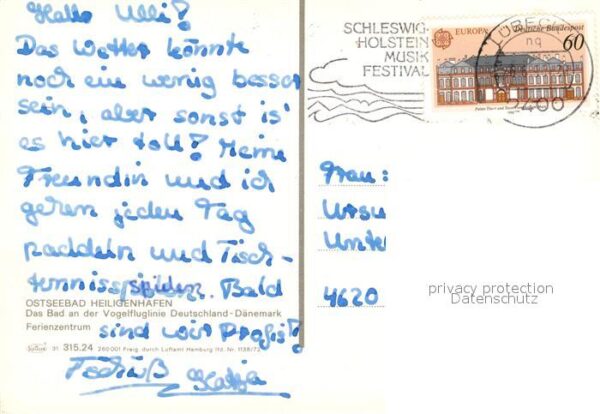 Hallo Ulli!
Das Wetter könnte
noch ein wenig besser
sein, aber sonst is'
es hier toll! Meine
Freundin und ich
gehen jeden Tag
paddeln und Tisch-
tennisspielen. Bald
sind wir Profis!
Tschüß Katja
OSTSEEBAD HEILIGENHAFEN
Das Bad an der Vogelfluglinie Deutschland-Dänemark
Ferienzentrum
31 315.24 260001 Freig. durch Luftamt Hamburg Nr. 1138/72
SCHLESWIG-
HOLSTEIN
MUSIK
FESTIVAL
EUROPA
Deutsche Bundespost
60
LÜBECK
2400
Frau:
Ursu
Unte
4620
privacy protection
Datenschutz